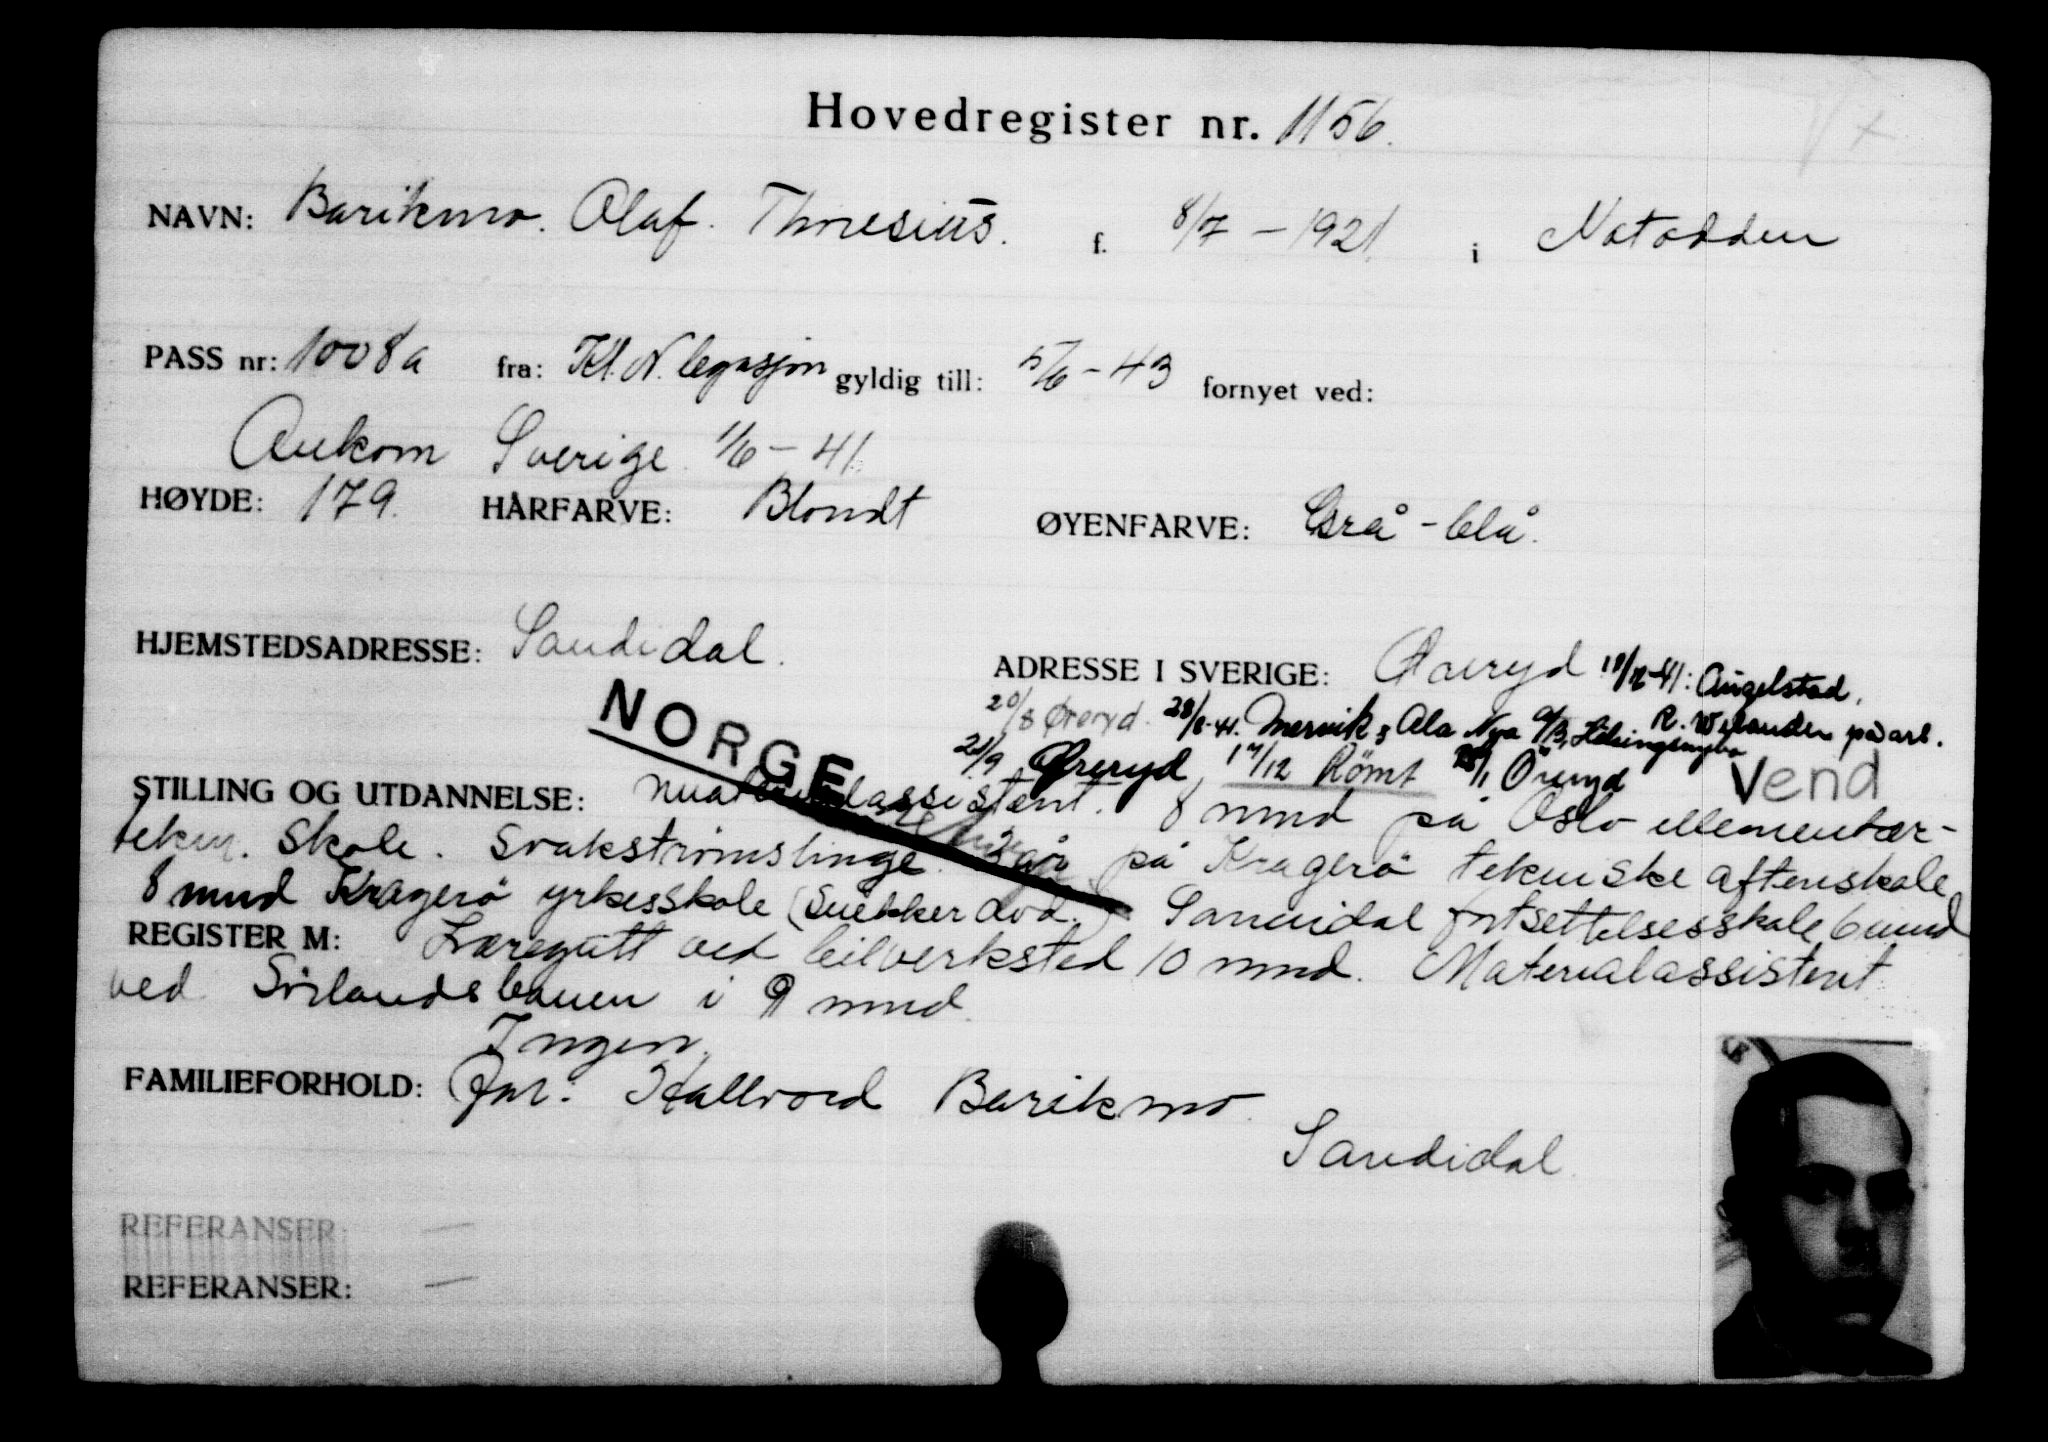 Hovedregister nr. 1156.
NAVN: Barikmo. Olaf. Thoresius. f. 8/7 – 1921 i Notodden
PASS nr: 1008a fra: Kl. N. legasjon gyldig till: 5/6 – 43 fornyet ved:
Ankom Sverige 1/6 – 41.
HØYDE: 179. HÅRFARVE: Blondt ØYENFARVE: Grå – blå.
HJEMSTEDSADRESSE: Sandidal. ADRESSE I SVERIGE: Öreryd 18/12-41: Angelstad,
20/8 Öreryd. 28/8-41. Mervik, Ala Nya R. Welanders på arb.
Helsingmyra
NORGE 21/9 Öreryd, 17/12 Römt 28/1 Öreryd
Vend
STILLING OG UTDANNELSE: materialassistent. 8 mnd på Oslo ellementær-
tekn. Skole. Svakstrømslinge. 2 år på Kragerö tekniske aftenskole
8 mnd Kragerö yrkesskole (Snekker avd.) Sannidal fortsettelsesskole 6 mnd
REGISTER M: Læregutt ved bilverksted 10 mnd. Materialassistent
ved Sörlandsbanen i 9 mnd.
Ingen.
FAMILIEFORHOLD: Far: Hallvord Barikmo
Sandidal.
REFERANSER: —
REFERANSER: —